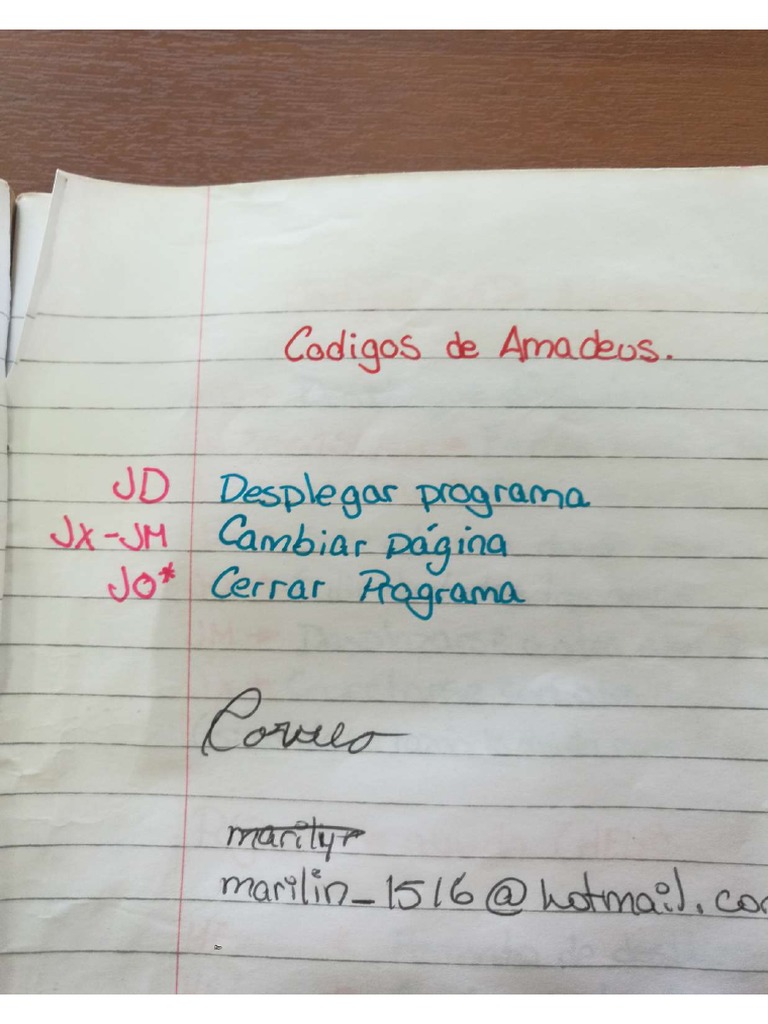 Codigos de Amadeus.
JD Desplegar programa
JX-JM Cambiar página
JO* Cerrar Programa
Correo
marilin_1516@hotmail.co